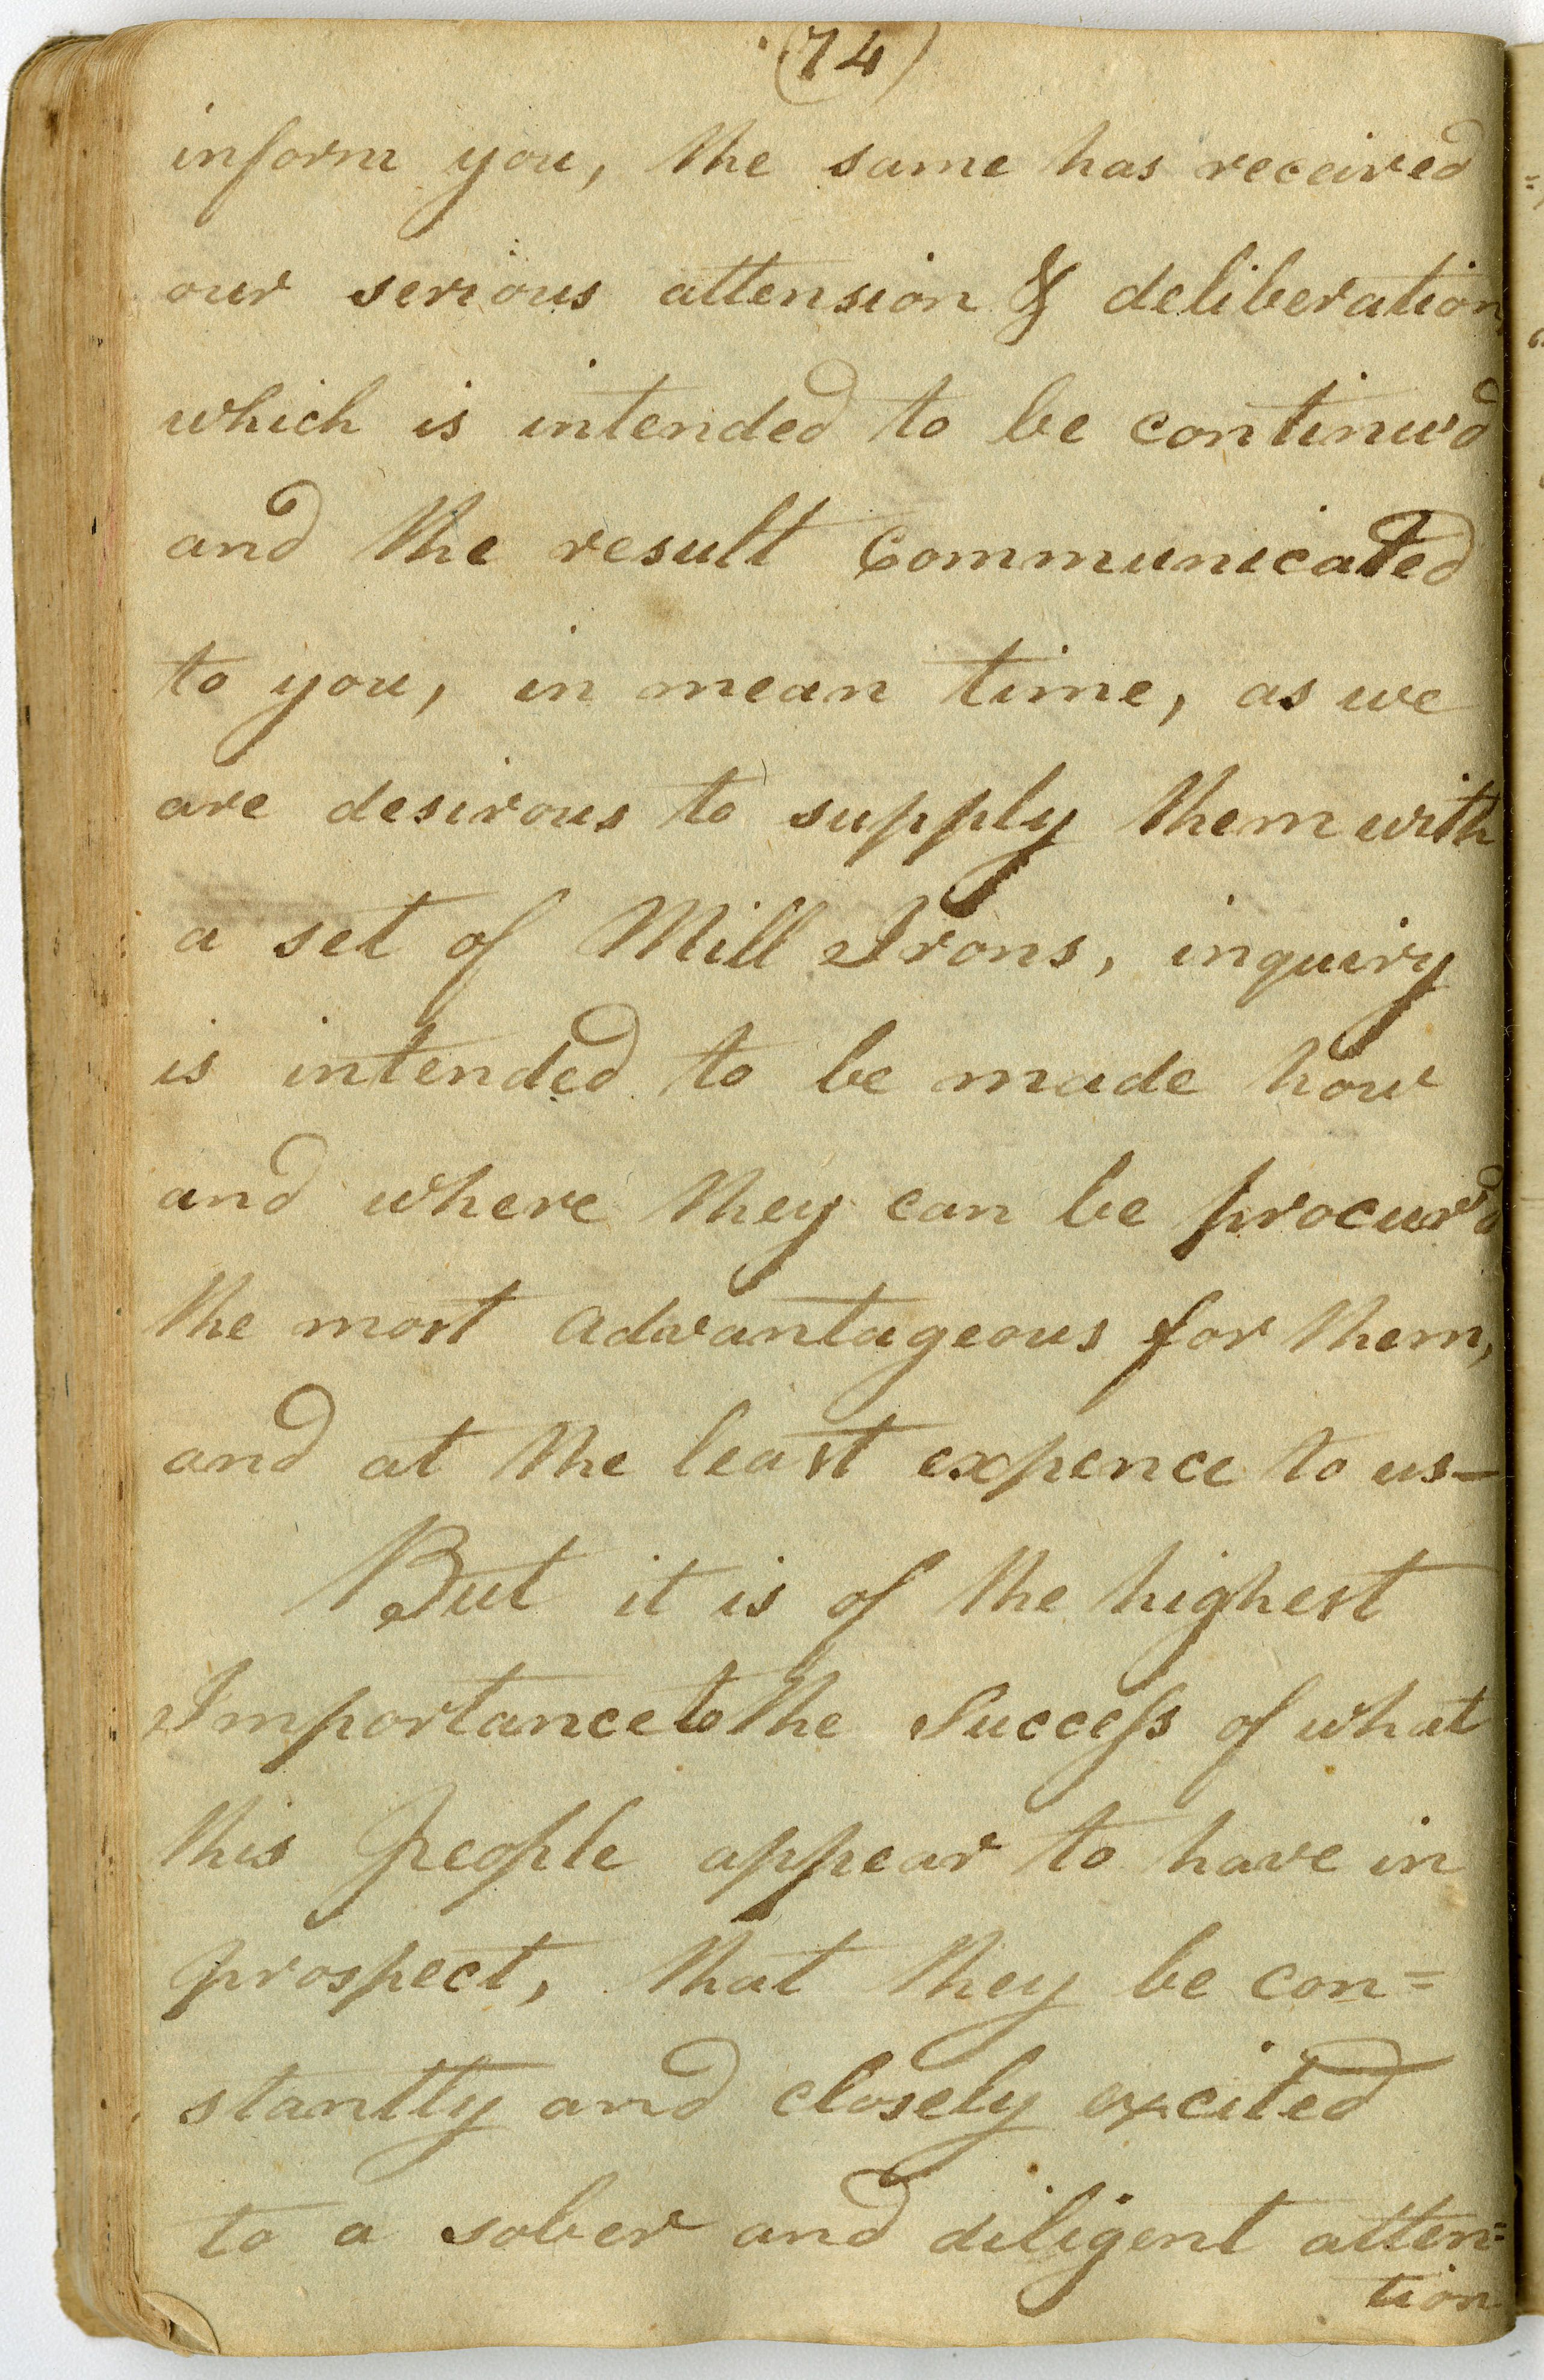 (74)
inform you, the same has received
our serious attension & deliberation,
which is intended to be continu'd
and the result Communicated
to you, in mean time, as we
are desirous to supply them with
a set of Mill Irons, inquiry
is intended to be made how
and where they can be procur'd
the most advantageous for them,
and at the least expence to us—
But it is of the highest
Importance to the Success of what
this People appear to have in
prospect, that they be con=
stantly and closely excited
to a sober and diligent atten=
tion